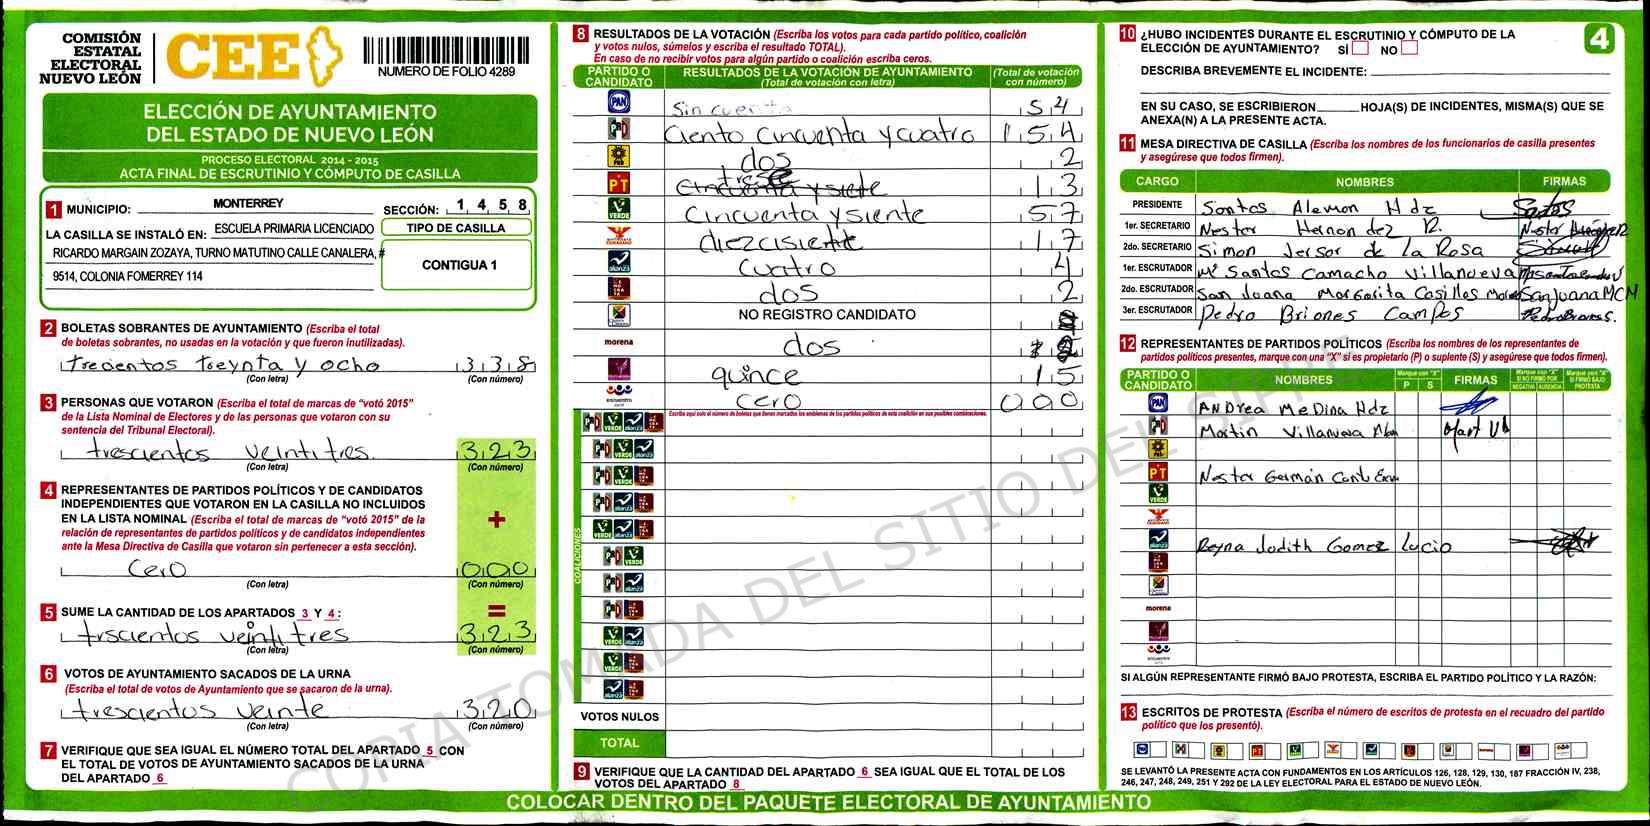 COMISIÓN
ESTATAL
ELECTORAL
NUEVO LEÓN
CEE
NUMERO DE FOLIO 4289
ELECCIÓN DE AYUNTAMIENTO
DEL ESTADO DE NUEVO LEÓN
PROCESO ELECTORAL 2014 - 2015
ACTA FINAL DE ESCRUTINIO Y CÓMPUTO DE CASILLA
1 MUNICIPIO: MONTERREY SECCIÓN: 1 4 5 8
LA CASILLA SE INSTALÓ EN: ESCUELA PRIMARIA LICENCIADO
RICARDO MARGAIN ZOZAYA, TURNO MATUTINO CALLE CANALERA, #
9514, COLONIA FOMERREY 114
TIPO DE CASILLA
CONTIGUA 1
2 BOLETAS SOBRANTES DE AYUNTAMIENTO (Escriba el total
de boletas sobrantes, no usadas en la votación y que fueron inutilizadas).
trecientos treynta y ocho 3 3 8
(Con letra) (Con número)
3 PERSONAS QUE VOTARON (Escriba el total de marcas de “votó 2015”
de la Lista Nominal de Electores y de las personas que votaron con su
sentencia del Tribunal Electoral).
trescientos veintitres 3 2 3
(Con letra) (Con número)
4 REPRESENTANTES DE PARTIDOS POLÍTICOS Y DE CANDIDATOS
INDEPENDIENTES QUE VOTARON EN LA CASILLA NO INCLUIDOS
EN LA LISTA NOMINAL (Escriba el total de marcas de “votó 2015” de la
relación de representantes de partidos políticos y de candidatos independientes
ante la Mesa Directiva de Casilla que votaron sin pertenecer a esta sección).
+
cero 0 0 0
(Con letra) (Con número)
=
5 SUME LA CANTIDAD DE LOS APARTADOS 3 Y 4:
trscientos veintitres 3 2 3
(Con letra) (Con número)
6 VOTOS DE AYUNTAMIENTO SACADOS DE LA URNA
(Escriba el total de votos de Ayuntamiento que se sacaron de la urna).
trescientos veinte 3 2 0
(Con letra) (Con número)
7 VERIFIQUE QUE SEA IGUAL EL NÚMERO TOTAL DEL APARTADO 5 CON
EL TOTAL DE VOTOS DE AYUNTAMIENTO SACADOS DE LA URNA
DEL APARTADO 6
8 RESULTADOS DE LA VOTACIÓN (Escriba los votos para cada partido político, coalición
y votos nulos, súmelos y escriba el resultado TOTAL).
En caso de no recibir votos para algún partido o coalición escriba ceros.
PARTIDO O CANDIDATO RESULTADOS DE LA VOTACIÓN DE AYUNTAMIENTO (Total de votación con letra) (Total de votación con número)
PAN Sin cuenta 5 4
PRD Ciento Cincuenta y cuatro 1 5 4
PRD dos 2
PT trese 1 3
VERDE Cincuenta y siente 5 7
diezcisiente 1 7
alianza cuatro 4
dos 2
NO REGISTRO CANDIDATO
morena dos
quince 1 5
encuentro cero 0 0 0
Escriba aquí solo el número de boletas que tienen marcados los emblemas de los partidos políticos de esta coalición en sus posibles combinaciones.
COALICIONES
VOTOS NULOS
TOTAL
9 VERIFIQUE QUE LA CANTIDAD DEL APARTADO 6 SEA IGUAL QUE EL TOTAL DE LOS
VOTOS DEL APARTADO 8
10 ¿HUBO INCIDENTES DURANTE EL ESCRUTINIO Y CÓMPUTO DE LA
ELECCIÓN DE AYUNTAMIENTO? SÍ NO
4
DESCRIBA BREVEMENTE EL INCIDENTE:
EN SU CASO, SE ESCRIBIERON HOJA(S) DE INCIDENTES, MISMA(S) QUE SE
ANEXA(N) A LA PRESENTE ACTA.
11 MESA DIRECTIVA DE CASILLA (Escriba los nombres de los funcionarios de casilla presentes
y asegúrese que todos firmen).
CARGO NOMBRES FIRMAS
PRESIDENTE Santos Aleman Hdz Santos
1er. SECRETARIO Nestor Hernandez R. Nestor
2do. SECRETARIO Simon Jersor de la Rosa
1er. ESCRUTADOR Mª Santos Camacho Villanueva
2do. ESCRUTADOR San Juana Margarita Casillas SanJuanaMCM
3er. ESCRUTADOR Pedro Briones Campos
12 REPRESENTANTES DE PARTIDOS POLÍTICOS (Escriba los nombres de los representantes de
partidos políticos presentes, marque con una “X” si es propietario (P) o suplente (S) y asegúrese que todos firmen).
PARTIDO O CANDIDATO NOMBRES Marque con “X” P S FIRMAS Marque con “X” SI NO FIRMÓ POR NEGATIVA AUSENCIA Marque con “X” SI FIRMÓ BAJO PROTESTA
PAN ANDrea MeDina Hdz
Martin Villanueva Mart
PT Nestor Germán Cantu
Reyna Judith Gomez Lucio
morena
SI ALGÚN REPRESENTANTE FIRMÓ BAJO PROTESTA, ESCRIBA EL PARTIDO POLÍTICO Y LA RAZÓN:
13 ESCRITOS DE PROTESTA (Escriba el número de escritos de protesta en el recuadro del partido
político que los presentó).
SE LEVANTÓ LA PRESENTE ACTA CON FUNDAMENTOS EN LOS ARTÍCULOS 126, 128, 129, 130, 187 FRACCIÓN IV, 238,
246, 247, 248, 249, 251 Y 292 DE LA LEY ELECTORAL PARA EL ESTADO DE NUEVO LEÓN.
COLOCAR DENTRO DEL PAQUETE ELECTORAL DE AYUNTAMIENTO
COPIA TOMADA DEL SITIO DEL SIPRE